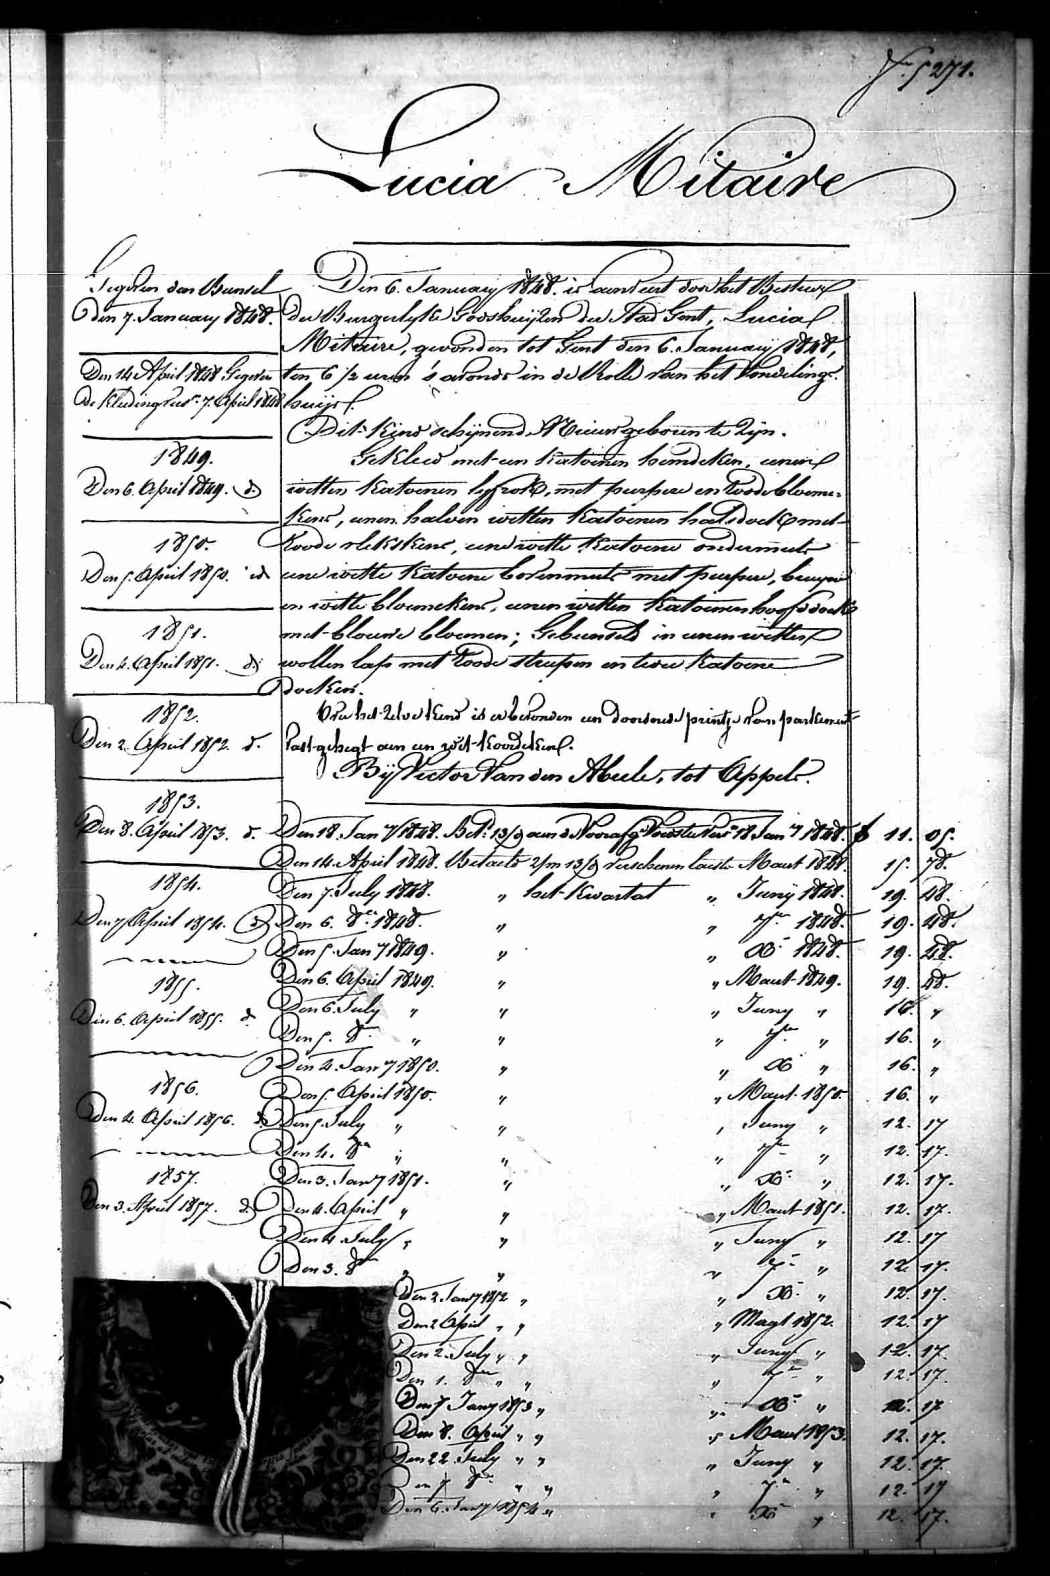 f.° 5271.
Lucia Mitaire
Gegeven den Bunsel
Den 7. January 1848.
Den 14 April 1848 Gegeven
de Kleding Verv.n 7. April 1848
1849.
Den 6. April 1849. d.
1850.
Den 5. April 1850. id
1851.
Den 4. April 1851. d.
1852.
Den 2. April 1852. d.
1853.
Den 8. April 1853. d.
1854.
Den 7 April 1854. d.
1855.
Den 6. April 1855. d.
1856.
Den 4. April 1856. d.
1857.
Den 3. April 1857. d.
Den 6. January 1848. is aenveert door het Bestuer
der Burgerlyke Godshuijzen der Stad Gent, Lucia
Mitaire, gevonden tot Gent den 6. January 1848,
ten 6 1/2 uren s'avonds in de Rolle van het Vondelinge-
huijs.
Dit Kind schijnende Nieuwgeboren te Zijn.
Gekleed met een Katoenen hemdeken, eenen
witten Katoenen lyfrok, met purpere en roode bloeme-
kens, eenen halven witten Katoenen halsdoek met
roode vlekskens, eene witte Katoene ondermuts
eene witte Katoene bovenmuts met purpere, bruyne
en witte bloemekens, eenen witten Katoenen hoofddoek
met blauwe bloemen; Gebunseld in eenen witten
wollen lap met roode streepen en twee Katoene
doeken.
Over het Zelve Kind is er bevonden een doorsnede printje van parkement
vast gehegt aen een wit koordeken.
Bij Victor Van den Abeele, tot Appels.
Den 18. Jan.y 1848. Bet: 13/9 aen de Voorafg: Voedster Verv.n 18 Jan.y 1848. f 11. 05.
Den 14. April 1848. Betaelt 2/m 13/9 verschenen laeste Maert 1848. 15. 78.
Den 7. July 1848. " het Kwartael " Junij 1848. 19. 48.
Den 6. 8.er 1848. " " 7.er 1848. 19. 48.
Den 5. Jan.y 1849. " " X.r 1848. 19. 48.
Den 6. April 1849. " " Maert 1849. 19. 48.
Den 6. July " " " Juny " 16. "
Den 5. 8.r " " " 7.r " 16. "
Den 4. Jan.y 1850. " " X " 16. "
Den 5. April 1850. " " Maert 1850. 16. "
Den 5. July " " " Juny " 12. 17
Den 4. 8.er " " " 7.r " 12. 17.
Den 3. Jan.y 1851. " " X.r " 12. 17.
Den 4. April " " " Maert 1851. 12. 17.
Den 4. July " " " Juny " 12. 17
Den 3. 8.er " " " 7.r " 12. 17.
Den 2. Jan.y 1852 " " X.r " 12. 17.
Den 2 April " " " Maert 1852. 12. 17
Den 2. July " " " Juny " 12. 17.
Den 1. 8.er " " " 7.r " 12. 17.
Den 7 Jan.y 1853 " " X.r " 12. 17
Den 8. April " " " Maert 1853. 12. 17.
Den 22 July " " " Juny " 12. 17.
Den 7 8.r " " " 7.r " 12. 17
Den 6. Jan.y 1854 " " X.r " 12. 17.